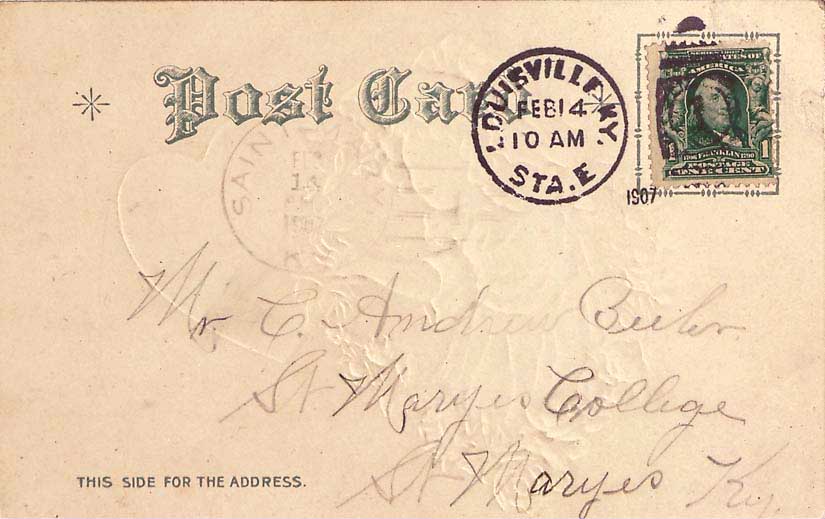 Post Card
LOUISVILLE KY.
FEB 14
10 AM
STA. E
1907
SERIES 1902
UNITED STATES OF
AMERICA
1706 FRANKLIN 1790
1 POSTAGE 1
ONE CENT
SAINT
14
Mr C. Andrew
St Maryes College
St Maryes Ky.
THIS SIDE FOR THE ADDRESS.